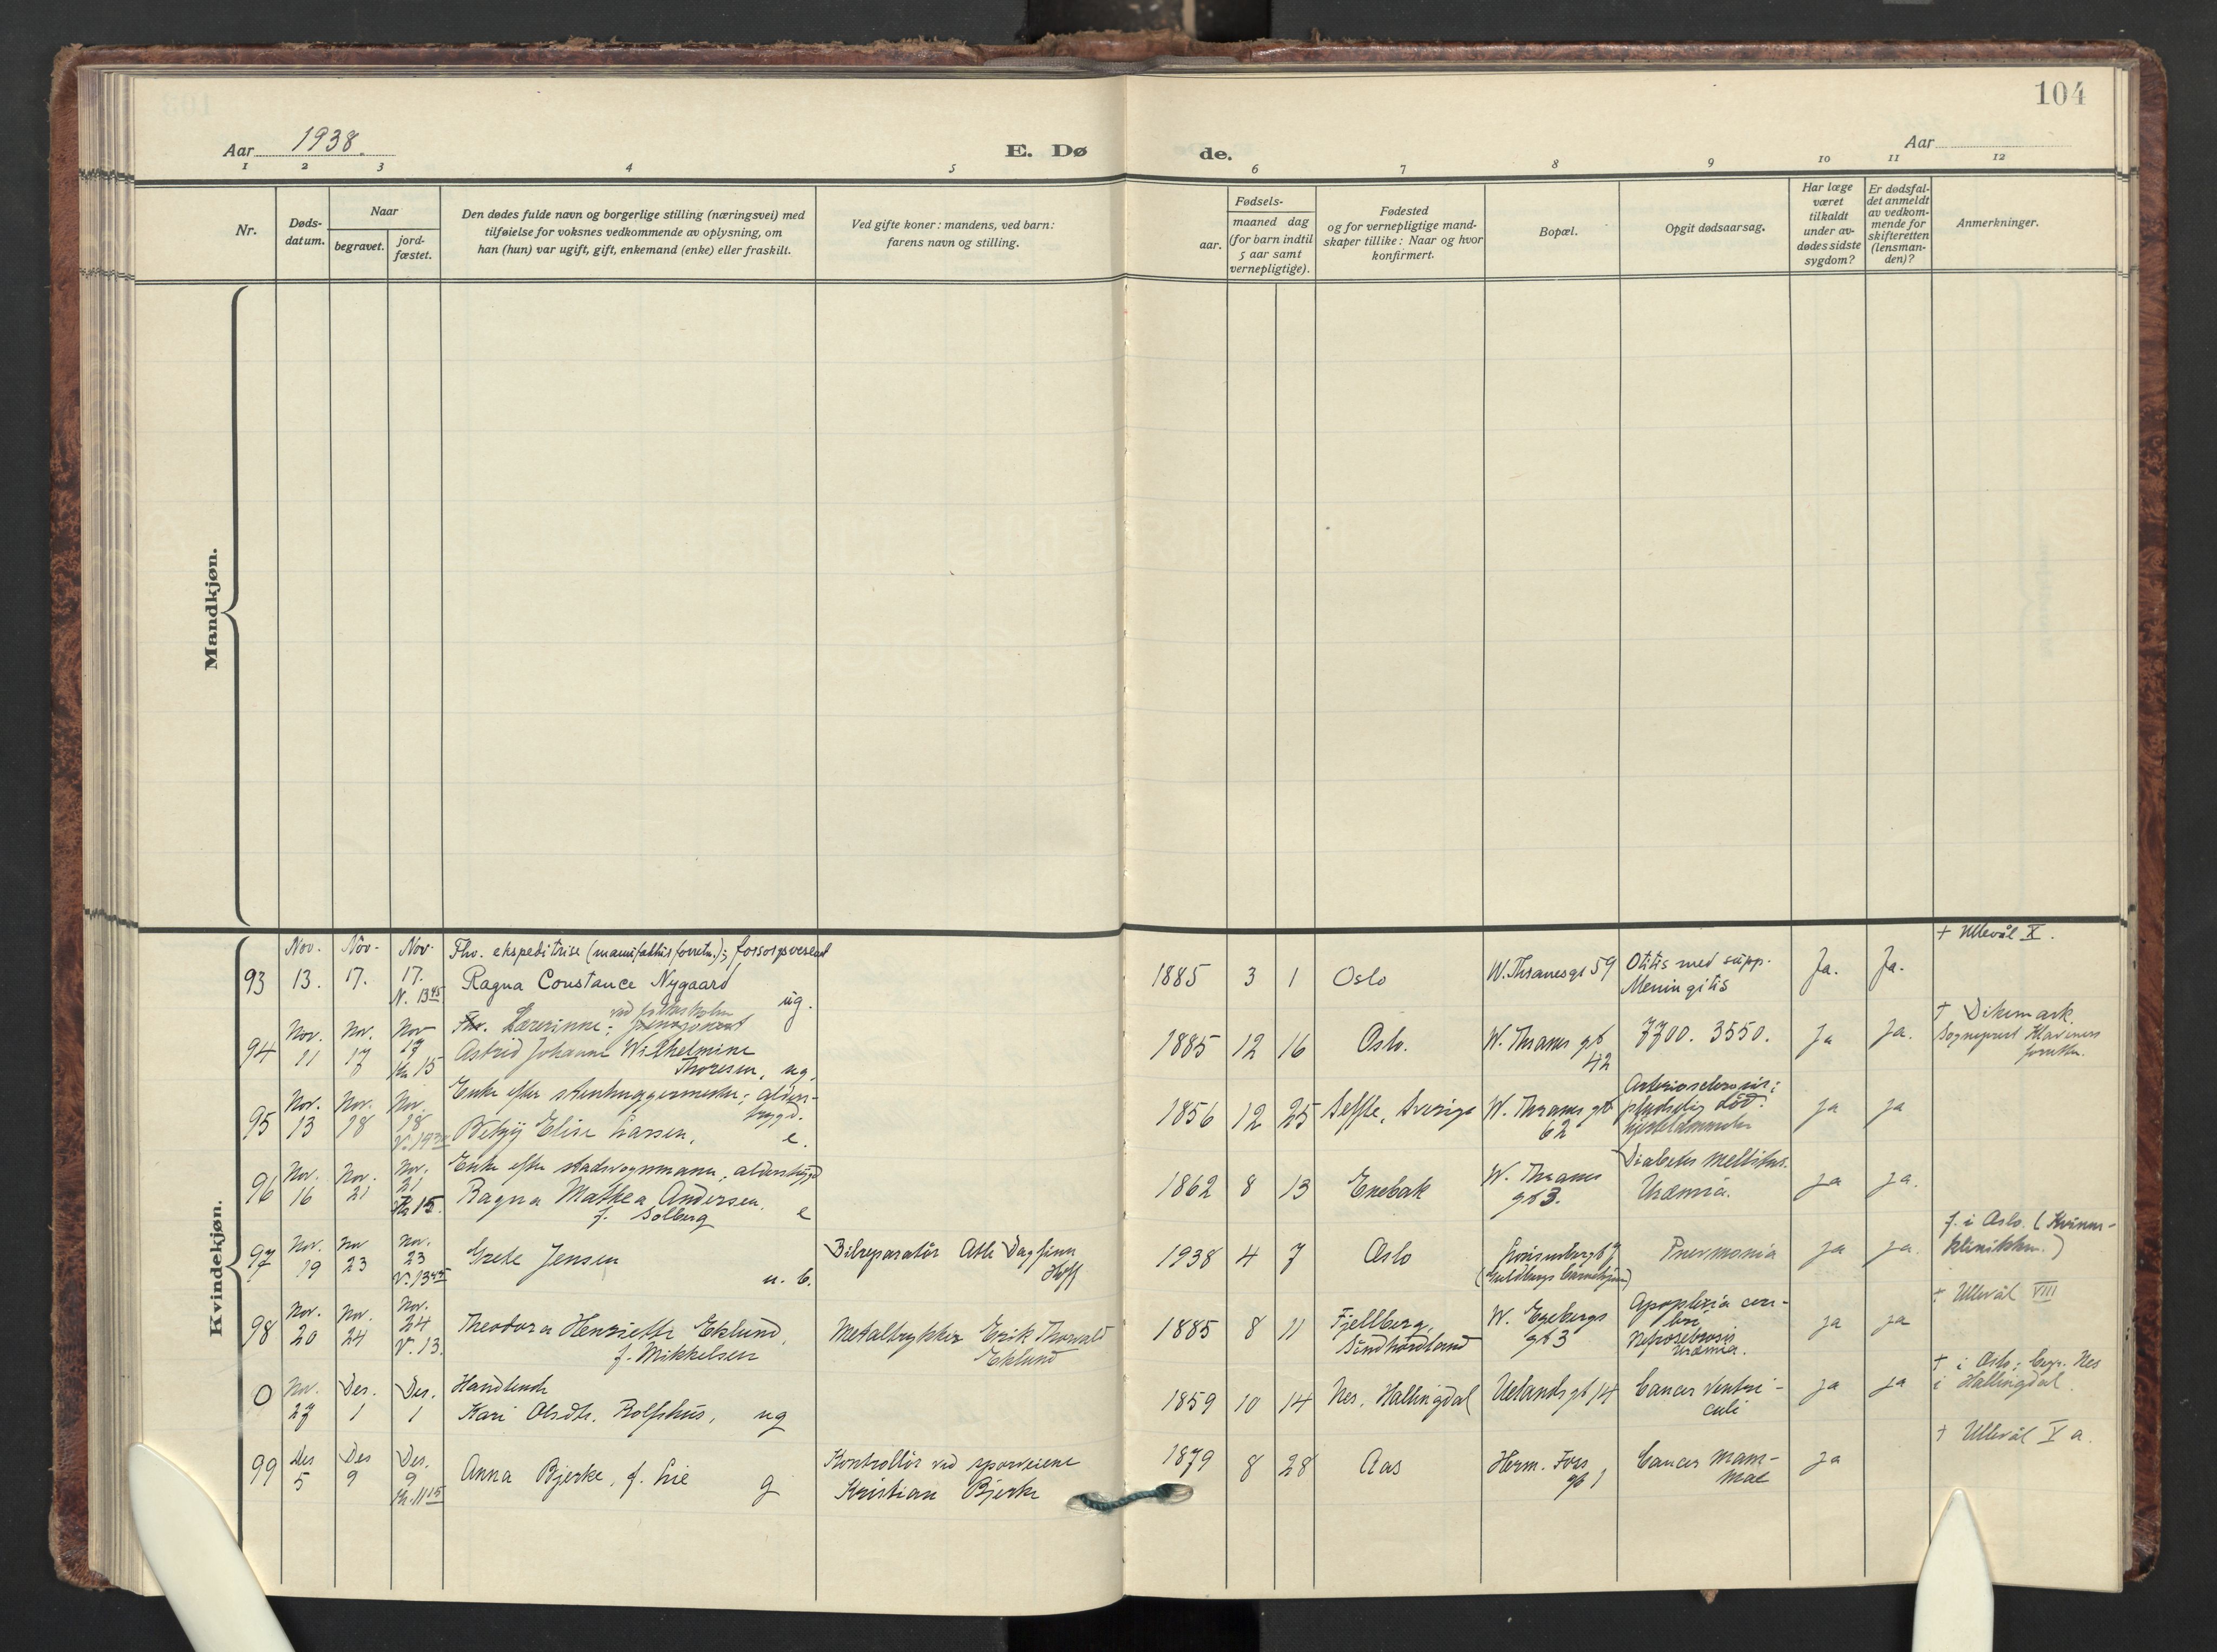 104
Aar 1938.
E. Døde.
Aar
1 2 3 4 5 6 7 8 9 10 11 12
Nr.
Døds-
datum.
Naar
begravet.
jord-
fæstet.
Den dødes fulde navn og borgerlige stilling (næringsvei) med
tilføielse for voksnes vedkommende av oplysning, om
han (hun) var ugift, gift, enkemand (enke) eller fraskilt.
Ved gifte koner: mandens, ved barn:
farens navn og stilling.
Fødsels-
aar.
maaned dag
(for barn indtil
5 aar samt
vernepligtige).
Fødested
og for vernepligtige mand-
skaper tillike: Naar og hvor
konfirmert.
Bopæl.
Opgit dødsaarsag.
Har læge
været
tilkaldt
under av-
dødes sidste
sygdom?
Er dødsfal-
det anmeldt
av vedkom-
mende for
skifteretten
(lensman-
den)?
Anmerkninger.
Mandkjøn.
Kvindekjøn.
Nov. Nov. Nov. Fhv. ekspeditrise
93 13. 17. 17. Ragna Constance Nygaard
N. 13 45 ug.
1885 3 1 Oslo W. Thranesgt 59 Otitis med supp.
Meningitis
Ja. Ja.
+ Ullevål X.
Nov. Nov. Nov Lærerinne;
94 11 17 17 Astrid Johanne Wilhelmine
15 Thoresen, ug.
1885 12 16 Oslo. W. Thranes gt
42
7700. 3550. Ja Ja.
+ Dikemark
Sogneprest
Nov. Nov. Nov. Enke efter stenhuggermester; alders-
trygd.
95 13 18 18 Elise Larsen, e.
1856 12 25 Seffle, Sverige W. Thranes gt
62
Arteriosclerosis;
pludselig død.
ja ja
Nov. Nov. Nov. Enke efter stadsvognmann, alderstrygd
96 16 21 21 Ragna Mathea Andersen,
15. f. Solberg e
1862 8 13 Enebak W. Thranes
gt 3.
Diabetes mellitus.
Uræmia.
ja ja.
Nov. Nov Nov.
97 19 23 23 Grete Jensen
V. 13 45 u. b.
Bilreparatør Atle Dagfinn
Hoff
1938 4 7 Oslo
Pneumonia ja ja.
f. i Oslo. (Kvinne-
klinikken.)
Nov. Nov. Nov.
98 20 24 24 Theodora Henriette Eklund,
V. 13. f. Mikkelsen
Metaltrykker Erik Thorvald
Eklund
1885 8 11 Fjellberg,
Sundhordland
W. Egebergs
gt 3
Apoplexia cere-
bri,
Uræmia.
ja ja
+ Ullevål VIII
Nov. Des. Des. Handlende
0 27 1 1 Kari Olsdtr. Rolfshus, ug
1859 10 14 Nes, Hallingdal Uelands gt 14 Cancer ventri-
culi
ja ja
+ i Oslo; begr. Nes
i Hallingdal.
Des Des Des.
99 5 9 9 Anna Bjerke, f. Lie g
11 15
Kontrollør ved sporveiene
Kristian Bjerke
1879 8 28 Aas Herm. Foss
gt 1
Cancer mam-
mae
ja
+ Ullevål X a.